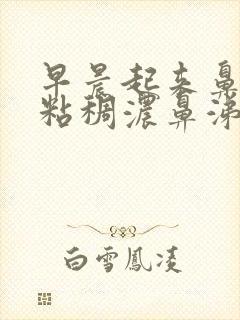 早晨起来鼻
粘稠浓鼻涕
白雪鳳凌